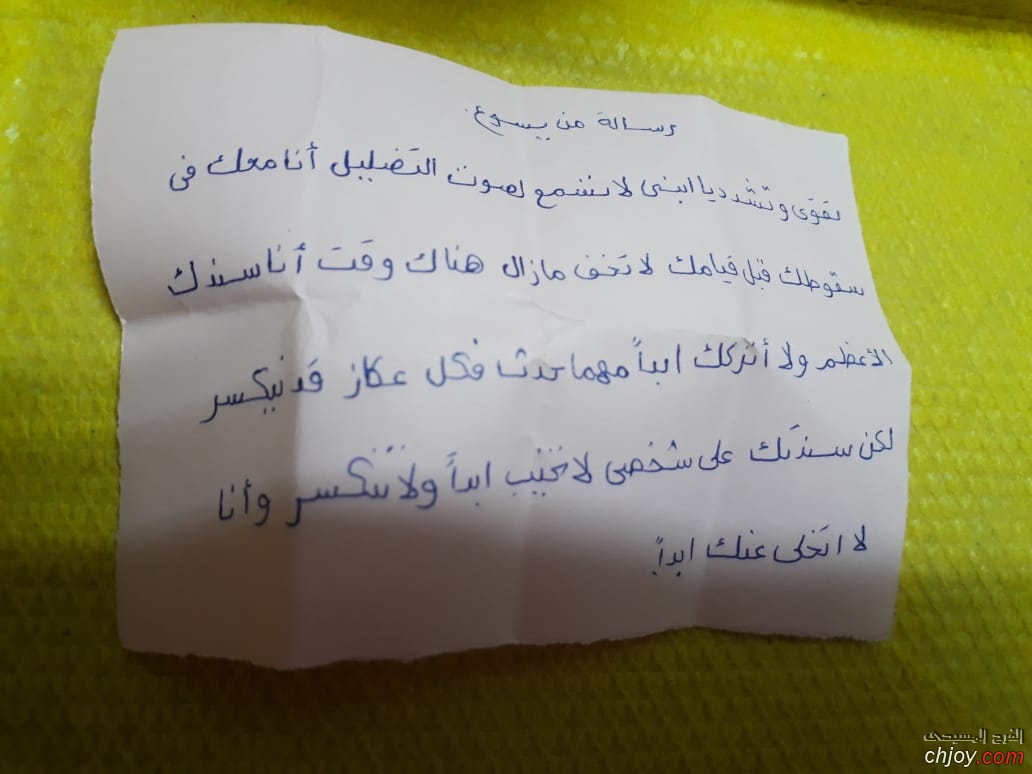 رسالة من يسوع.
تقوى وتشدد يا ابنى لا تسمع لصوت التضليل أنا معك فى
سقوطك قبل قيامك لا تخف مازال هناك وقت أنا سندك
الأعظم ولا أتركك ابداً مهما حدث فكل عكاز قد ينكسر
لكن سندتك على شخصى لا تخيب ابداً ولا تنكسر وأنا
لا اتخلى عنك ابداً.
الفرح المسيحى
chjoy.com